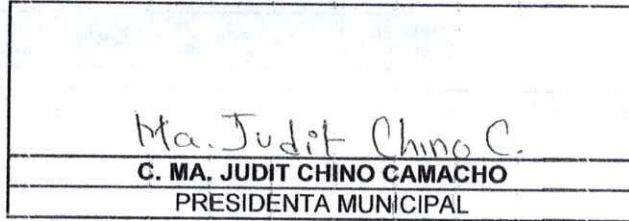 Ma. Judit Chino C.
C. MA. JUDIT CHINO CAMACHO
PRESIDENTA MUNICIPAL